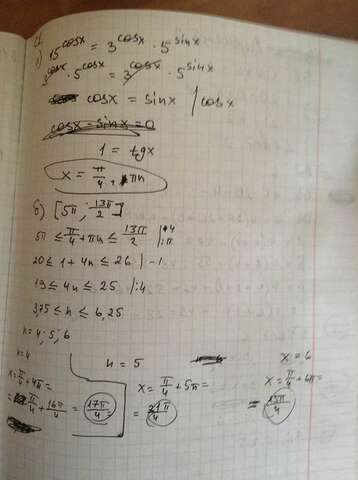 а) 15^cosx = 3^cosx · 5^sinx
3^cosx · 5^cosx = 3^cosx · 5^sinx
cosx = sinx | cosx
cosx - sinx = 0
1 = tgx
x = π/4 + πn
б) [5π ; 13π/2]
5π ≤ π/4 + πn ≤ 13π/2 |·4 |:π
20 ≤ 1 + 4n ≤ 26 | -1
19 ≤ 4n ≤ 25 |:4
3,75 ≤ n ≤ 6,25
n = 4; 5; 6
n=4 n = 5 x = 6
x = π/4 + 4π = x = π/4 + 5π = x = π/4 + 6π =
= π/4 + 16π/4 = 17π/4 = 21π/4